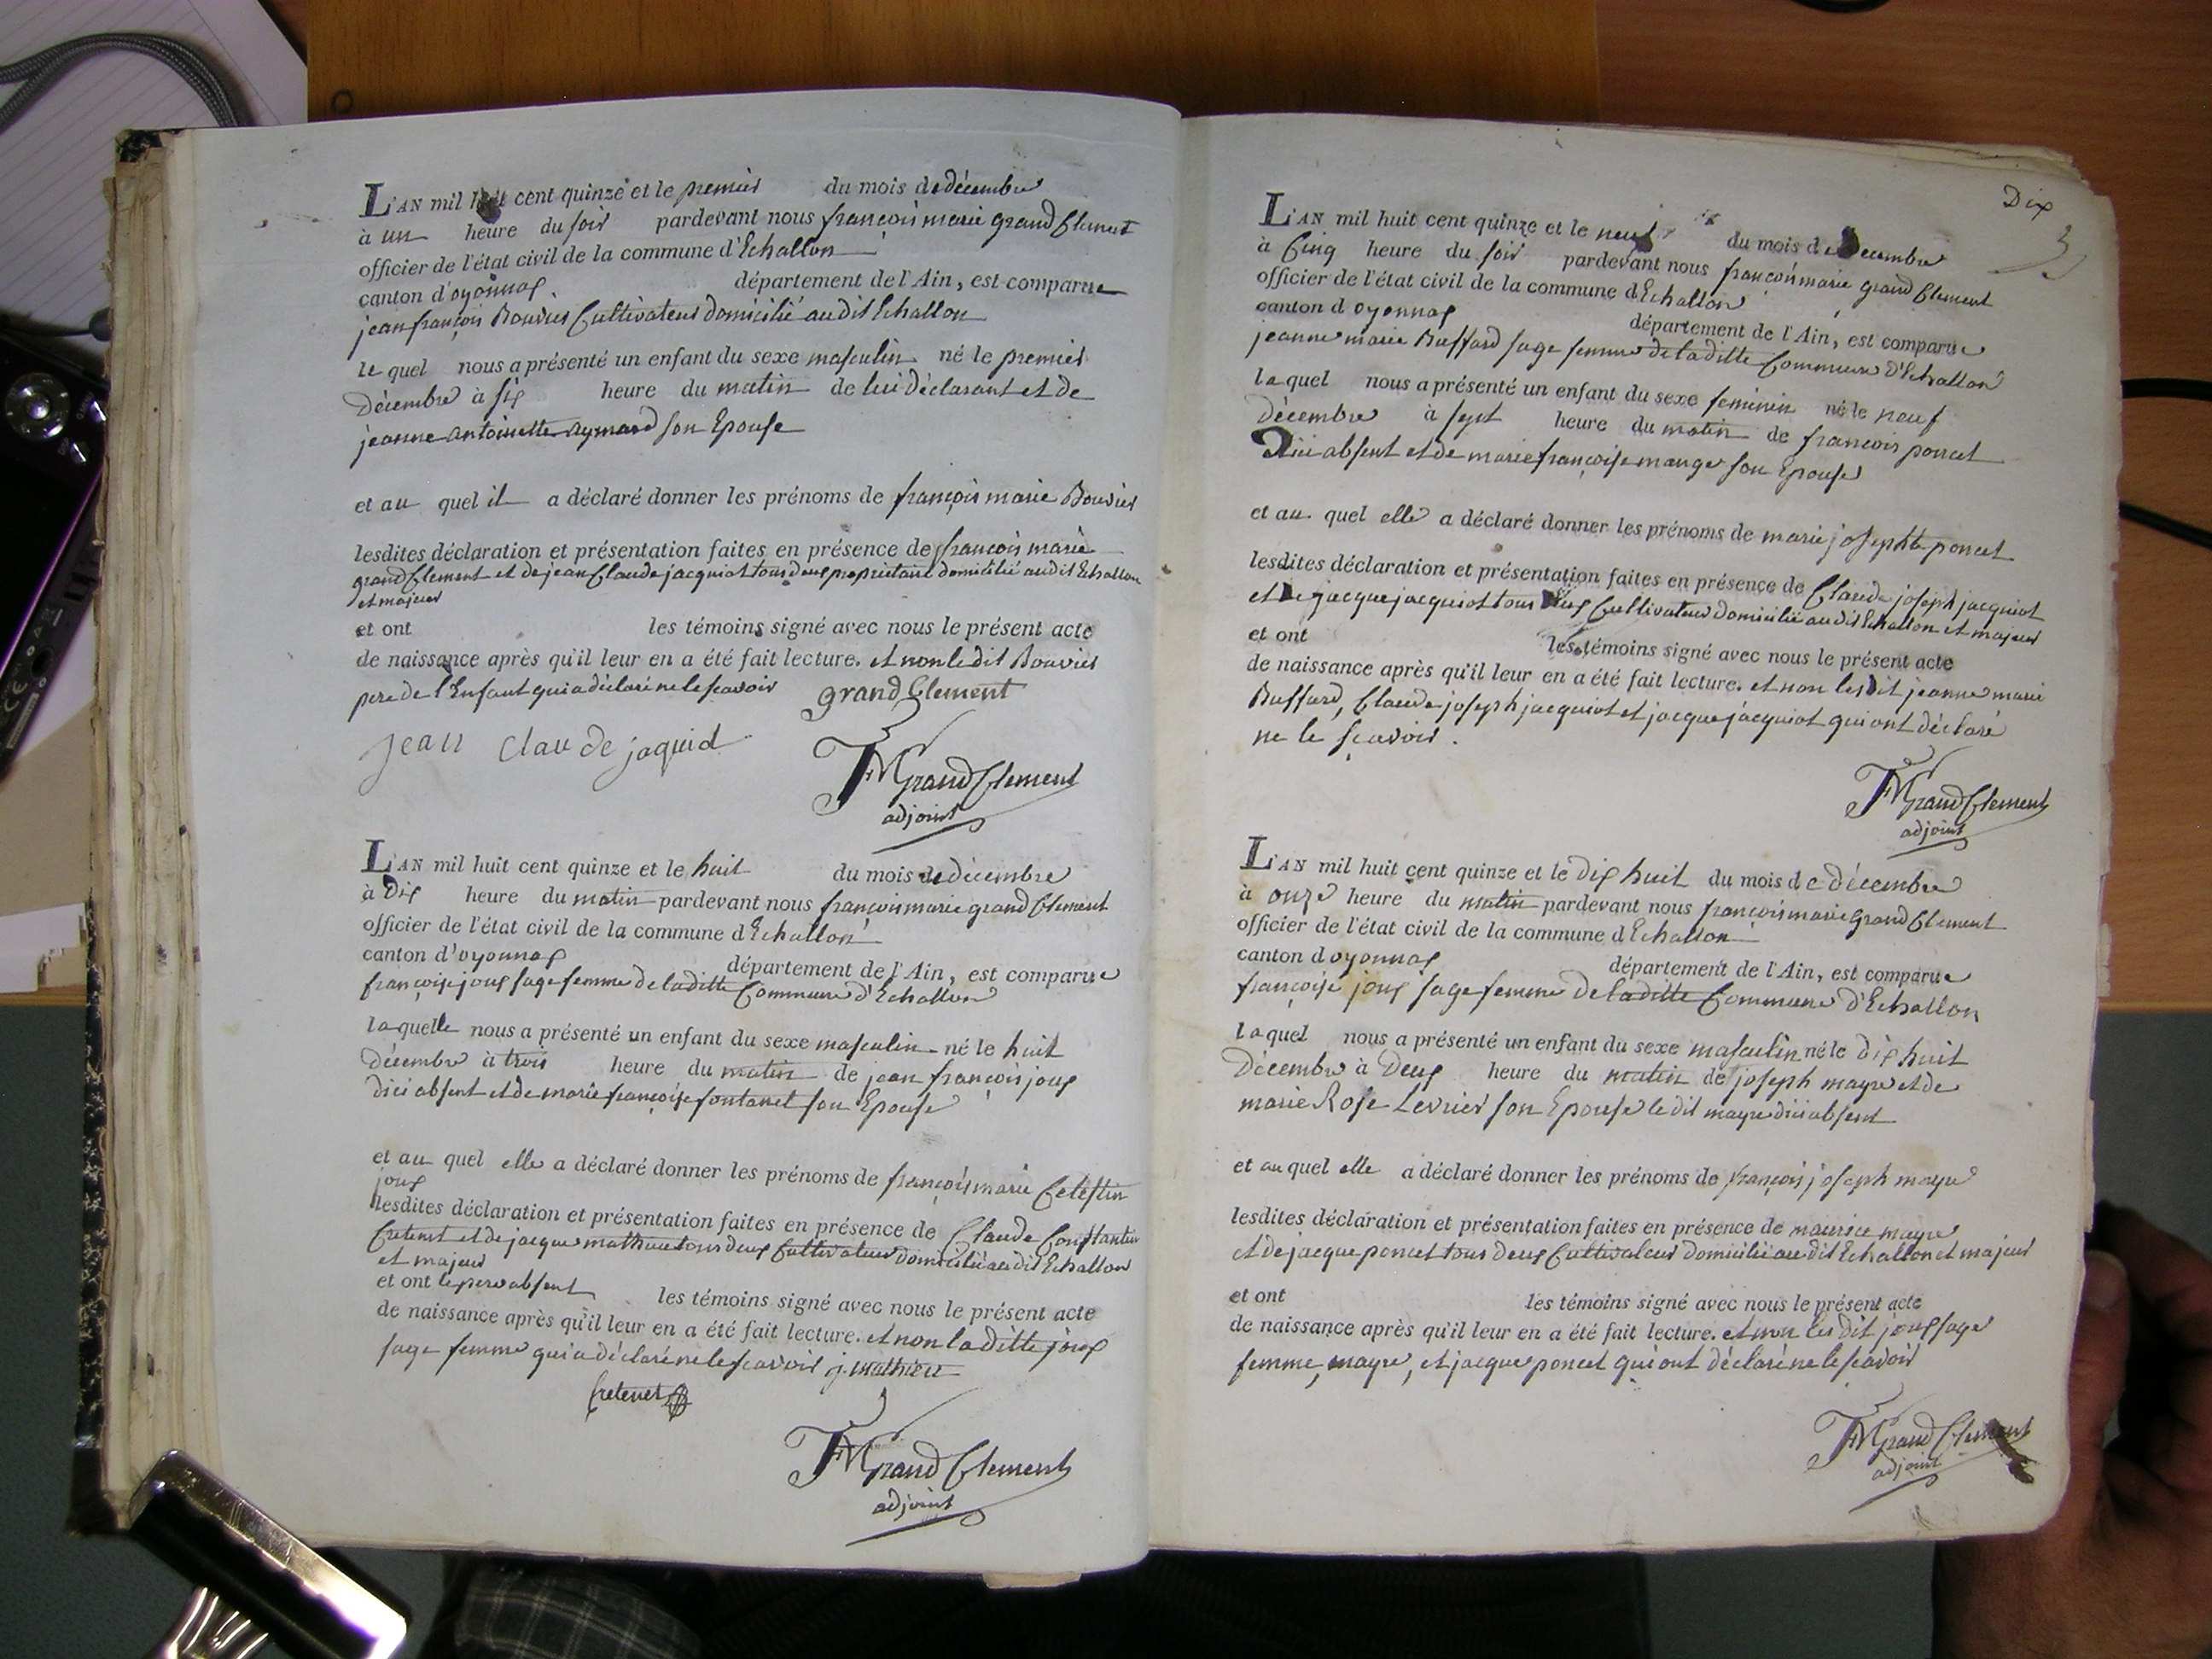 L'AN mil huit cent quinze et le premier du mois de décembre
à un heure du soir pardevant nous françois marie grand Clement
officier de l'état civil de la commune d'Echallon
canton d'oyonnax département de l'Ain, est comparue
jean françois Bouvier Cultivateur domicilié audit Echallon
le quel nous a présenté un enfant du sexe masculin né le premier
Décembre à six heure du matin de lui déclarant et de
jeanne antoinette aymard son Epouse
et au quel il a déclaré donner les prénoms de françois marie Bouvier
lesdites déclaration et présentation faites en présence de françois marie
grand Clement et de jean Claude jacquiot tous deux proprietaire domicilié audit Echallon
et majeur
et ont les témoins signé avec nous le présent acte
de naissance après qu'il leur en a été fait lecture. et non le dit Bouvier
pere de l'Enfant qui a déclaré ne le scavoir grand Clement
jean claude jaquid
FM Grand Clement
adjoint
L'AN mil huit cent quinze et le huit du mois de décembre
à Dix heure du matin pardevant nous françois marie grand Clement
officier de l'état civil de la commune d Echallon
canton d'oyonnax département de l'Ain, est comparue
françoise joux sage femme de laditte Commune d'Echallon
laquelle nous a présenté un enfant du sexe masculin né le huit
décembre à trois heure du matin de jean françois joux
dici absent et de marie françoise fontanet son Epouse
et au quel elle a déclaré donner les prénoms de françois marie Celestin
joux
lesdites déclaration et présentation faites en présence de Claude Constantin
Cretenet et de jacque mathieu tous deux Cultivateur domicilié audit Echallon
et majeur
et ont le pere absent les témoins signé avec nous le présent acte
de naissance après qu'il leur en a été fait lecture. et non laditte joux
sage femme qui a déclaré ne le scavoir j. mathieu
Cretenet
FM Grand Clement
adjoint
Dix
L'AN mil huit cent quinze et le neuf du mois de Decembre
à Cinq heure du soir pardevant nous françois marie grand Clement
officier de l'état civil de la commune d Echallon
canton d oyonnax département de l'Ain, est comparue
jeanne marie Buffard sage femme de laditte Commune d'Echallon
la quel nous a présenté un enfant du sexe feminin né le neuf
décembre à sept heure du matin de françois poncet
Dici absent et de marie françoise mange son Epouse
et au quel elle a déclaré donner les prénoms de marie josephte poncet
lesdites déclaration et présentation faites en présence de Claude joseph jacquiot
et De jacque jacquiot tous deux Cultivateur domicilié audit Echallon et majeur
et ont les témoins signé avec nous le présent acte
de naissance après qu'il leur en a été fait lecture. et non lesdit jeanne marie
Buffard, Claude joseph jacquiot et jacque jacquiot qui ont déclaré
ne le scavoir.
FM Grand Clement
adjoint
L'AN mil huit cent quinze et le Dix huit du mois de décembre
à onze heure du matin pardevant nous françois marie Grand Clement
officier de l'état civil de la commune d Echallon
canton d oyonnax département de l'Ain, est comparue
françoise joux sage femme de laditte Commune d'Echallon
la quel nous a présenté un enfant du sexe masculin né le dix huit
Décembre à Deux heure du matin de joseph mayre et de
marie Rose Levrier son Epouse le dit mayre dici absent
et au quel elle a déclaré donner les prénoms de françois joseph mayre
lesdites déclaration et présentation faites en présence de maurice mayre
et de jacque poncet tous deux Cultivateur domicilié au dit Echallon et majeur
et ont les témoins signé avec nous le présent acte
de naissance après qu'il leur en a été fait lecture. et non les dit joux sage
femme, mayre, et jacque poncet qui ont déclaré ne le scavoir
FM Grand Clement
adjoint